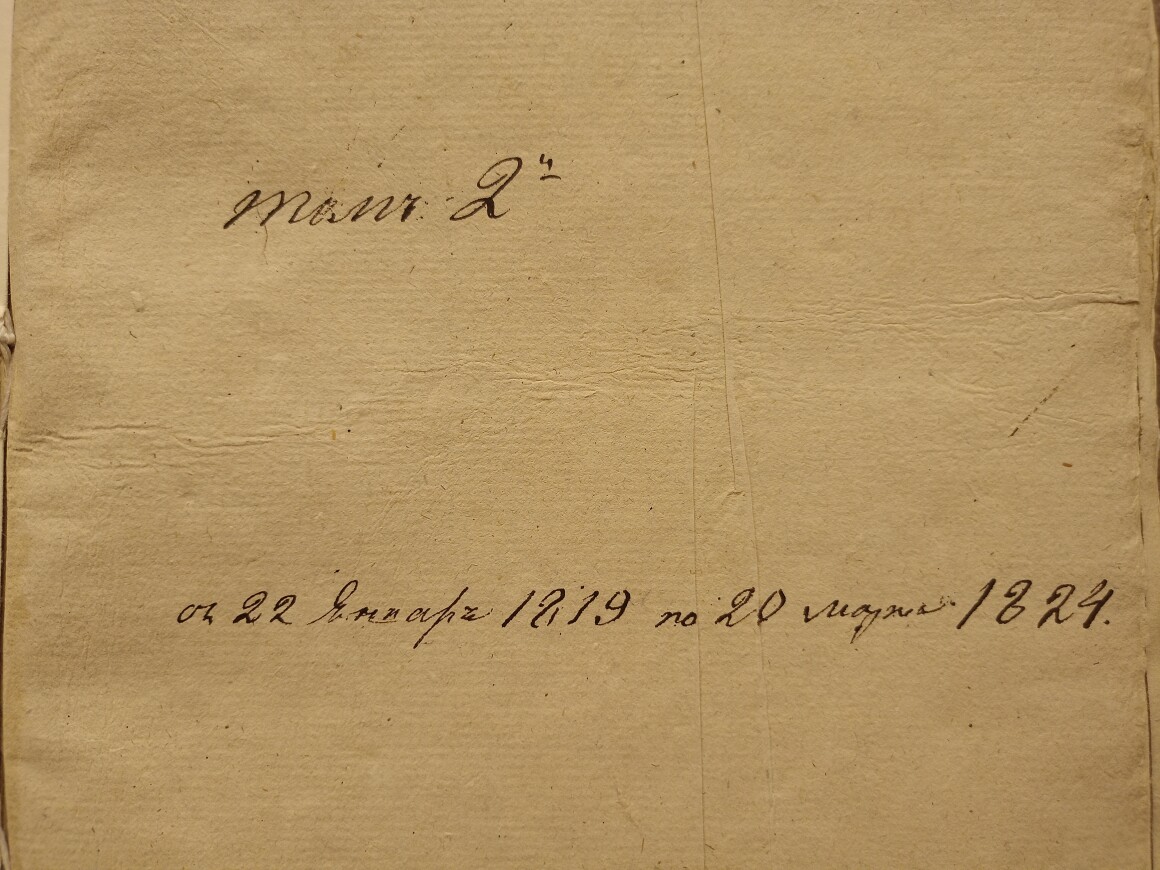 томъ 2й
съ 22 Января 1819 по 20 марта 1824.